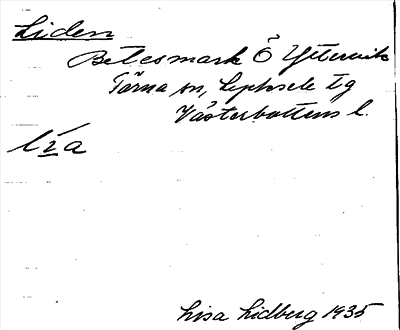 Liden
Betesmark Ö Yttervik
Tärna sn, Lycksele tg
Västerbottens l.
Lisa Lidberg 1935